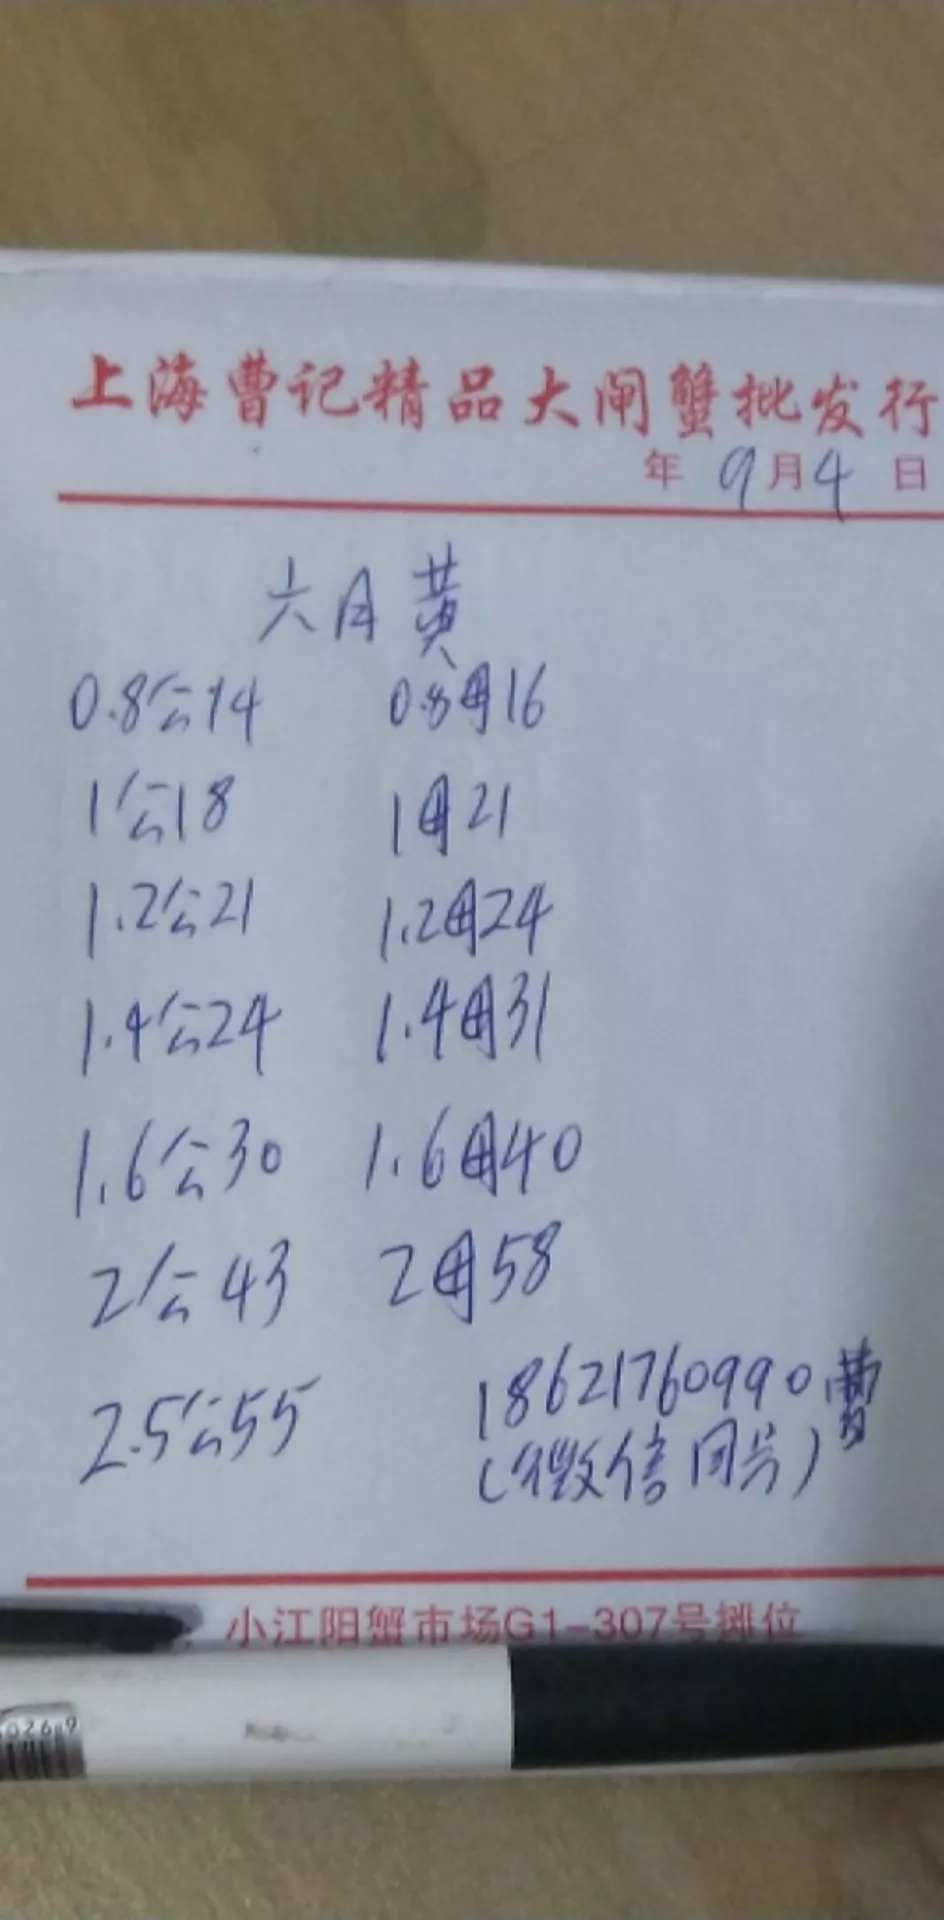 上海曹记精品大闸蟹批发行
年 9月4 日
六月黄
0.8公14 0.8母16
1公18 1母21
1.2公21 1.2母24
1.4公24 1.4母31
1.6公30 1.6母40
2公43 2母58
2.5公55 18621760990曹
(微信同号)
小江阳蟹市场G1-307号摊位